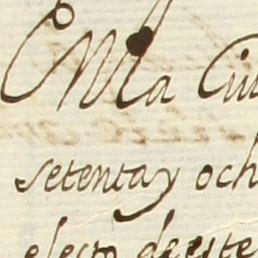 En la Ciu
setenta y och
efecto de este